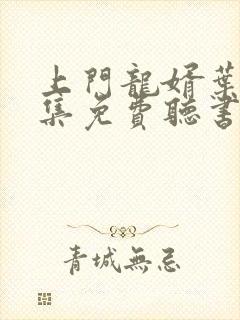 上門龍婿葉
集免費聽書
青城無忌